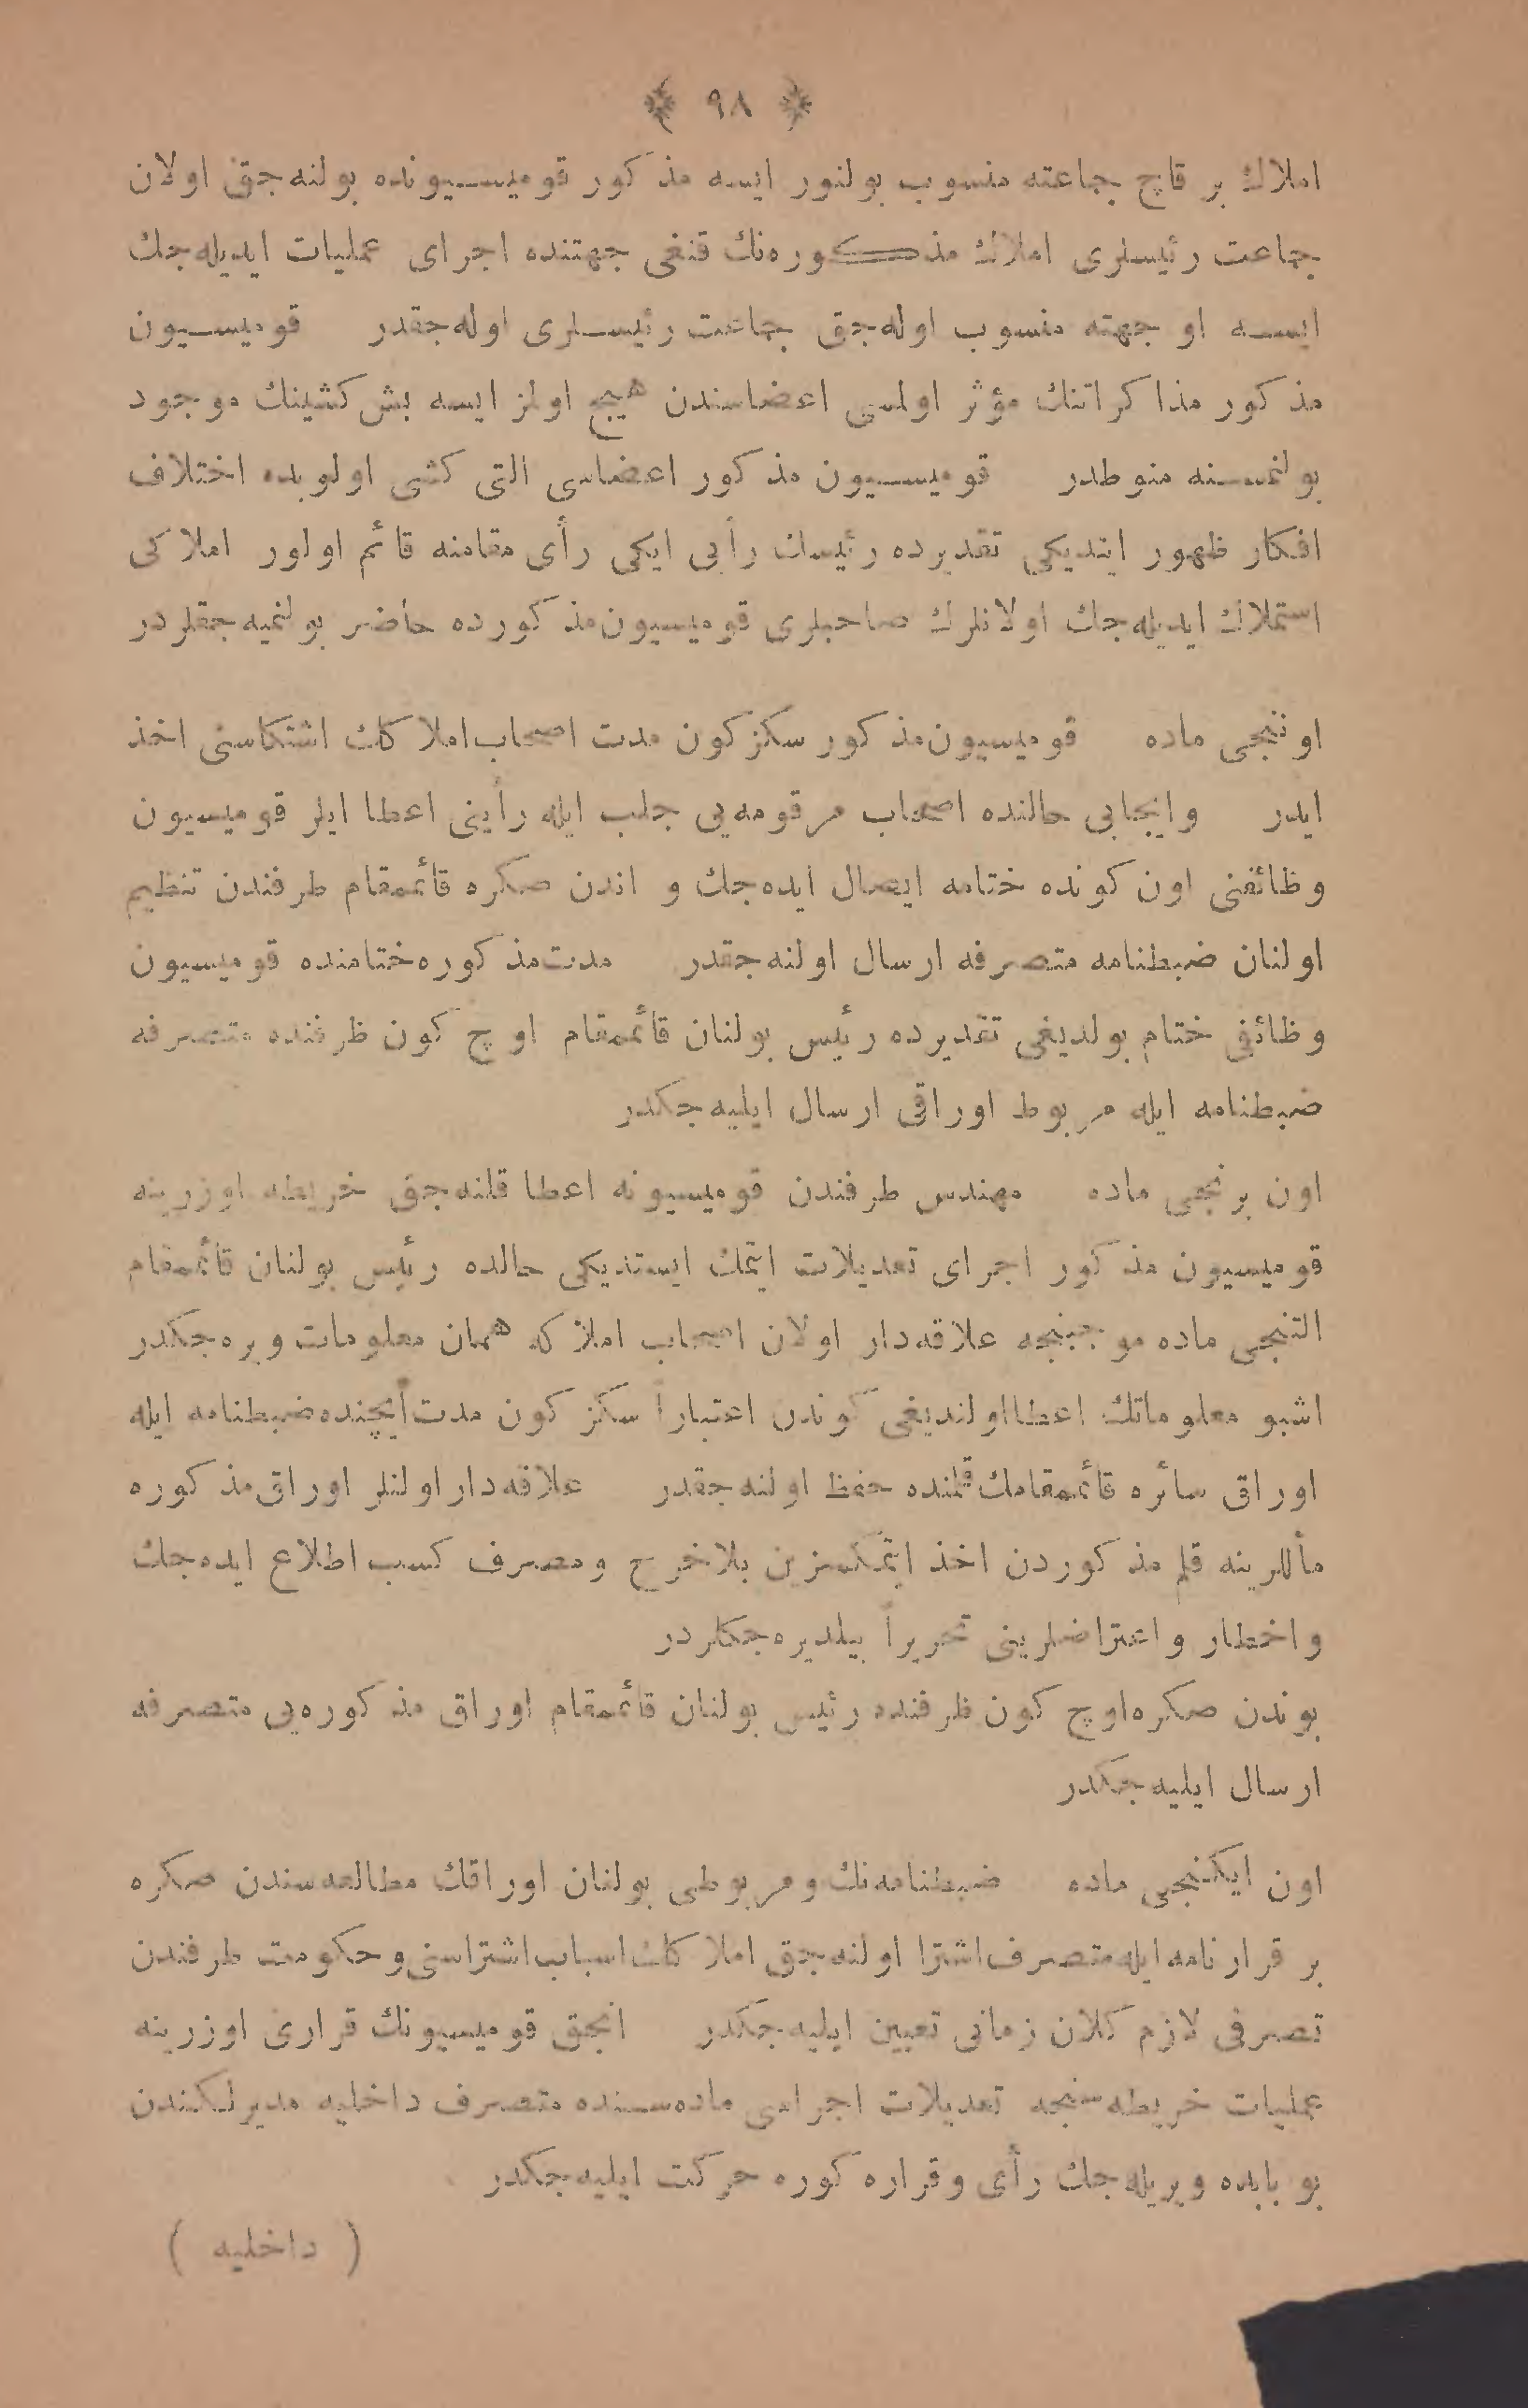 ﴿ ٩٨ ﴾
املاك بر قاچ جماعته منسوب بولنور ايسه مذكور قوميسيونده بولنه‌جق اولان
جماعت رئيسلری املاك مذكوره‌نك قنغی جهتنده اجرای عمليات ايديله‌جك
ايسه او جهته منسوب اوله‌جق جماعت رئيسلری اوله‌جقدر قوميسيون
مذكور مذاكراتنك مؤثر اولمسی اعضاسندن هيچ اولمز ايسه بش كشينك موجود
بولنمسنه منوطدر قوميسيون مذكور اعضاسی التی كشی اولوبده اختلاف
افكار ظهور ايتديكی تقديرده رئيسك رأيی ايكی رأی مقامنه قائم اولور املاكی
استملاك ايديله‌جك اولانلرك صاحبلری قوميسيون مذكورده حاضر بولنميه‌جقلردر
اوننجی ماده قوميسيون مذكور سكز كون مدت اصحاب املاكك اشتكاسنی اخذ
ايدر وايجابی حالنده اصحاب مرقومه‌يی جلب ايله رأينی اعطا ايلر قوميسيون
وظائفنی اون كونده ختامه ايصال ايده‌جك و اندن صكره قائممقام طرفندن تنظيم
اولنان ضبطنامه متصرفه ارسال اولنه‌جقدر مدت مذكوره ختامنده قوميسيون
وظائفی ختام بولديغی تقديرده رئيس بولنان قائممقام اوچ كون ظرفنده متصرفه
ضبطنامه ايله مربوط اوراقی ارسال ايليه‌جكدر
اون برنجی ماده مهندس طرفندن قوميسيونه اعطا قلنه‌جق خريطه اوزرينه
قوميسيون مذكور اجرای تعديلات ايتمك ايستديكی حالده رئيس بولنان قائممقام
التنجی ماده موجبنجه علاقه‌دار اولان اصحاب املاكه همان معلومات ويره‌جكدر
اشبو معلوماتك اعطا اولنديغی كوندن اعتباراً سكز كون مدت ايچنده ضبطنامه ايله
اوراق سائره قائممقامك قلمنده حفظ اولنه‌جقدر علاقه‌دار اولنلر اوراق مذكوره
مأللرينه قلم مذكوردن اخذ ايتمكسزين بلاخرج ومصرف كسب اطلاع ايده‌جك
واخطار واعتراضلرينی تحريراً بيلديره‌جكلردر
بوندن صكره اوچ كون ظرفنده رئيس بولنان قائممقام اوراق مذكوره‌يی متصرفه
ارسال ايليه‌جكدر
اون ايكنجی ماده ضبطنامه‌نك ومربوطی بولنان اوراقك مطالعه‌سندن صكره
بر قرارنامه ايله متصرف اشترا اولنه‌جق املاكك اسباب اشتراسنی وحكومت طرفندن
تصرفی لازم كلان زمانی تعيين ايليه‌جكدر انجق قوميسيونك قراری اوزرينه
عمليات خريطه‌سنجه تعديلات اجراسی ماده‌سنده متصرف داخليه مديرلكندن
بو بابده ويريله‌جك رأی وقراره كوره حركت ايليه‌جكدر
( داخليه )